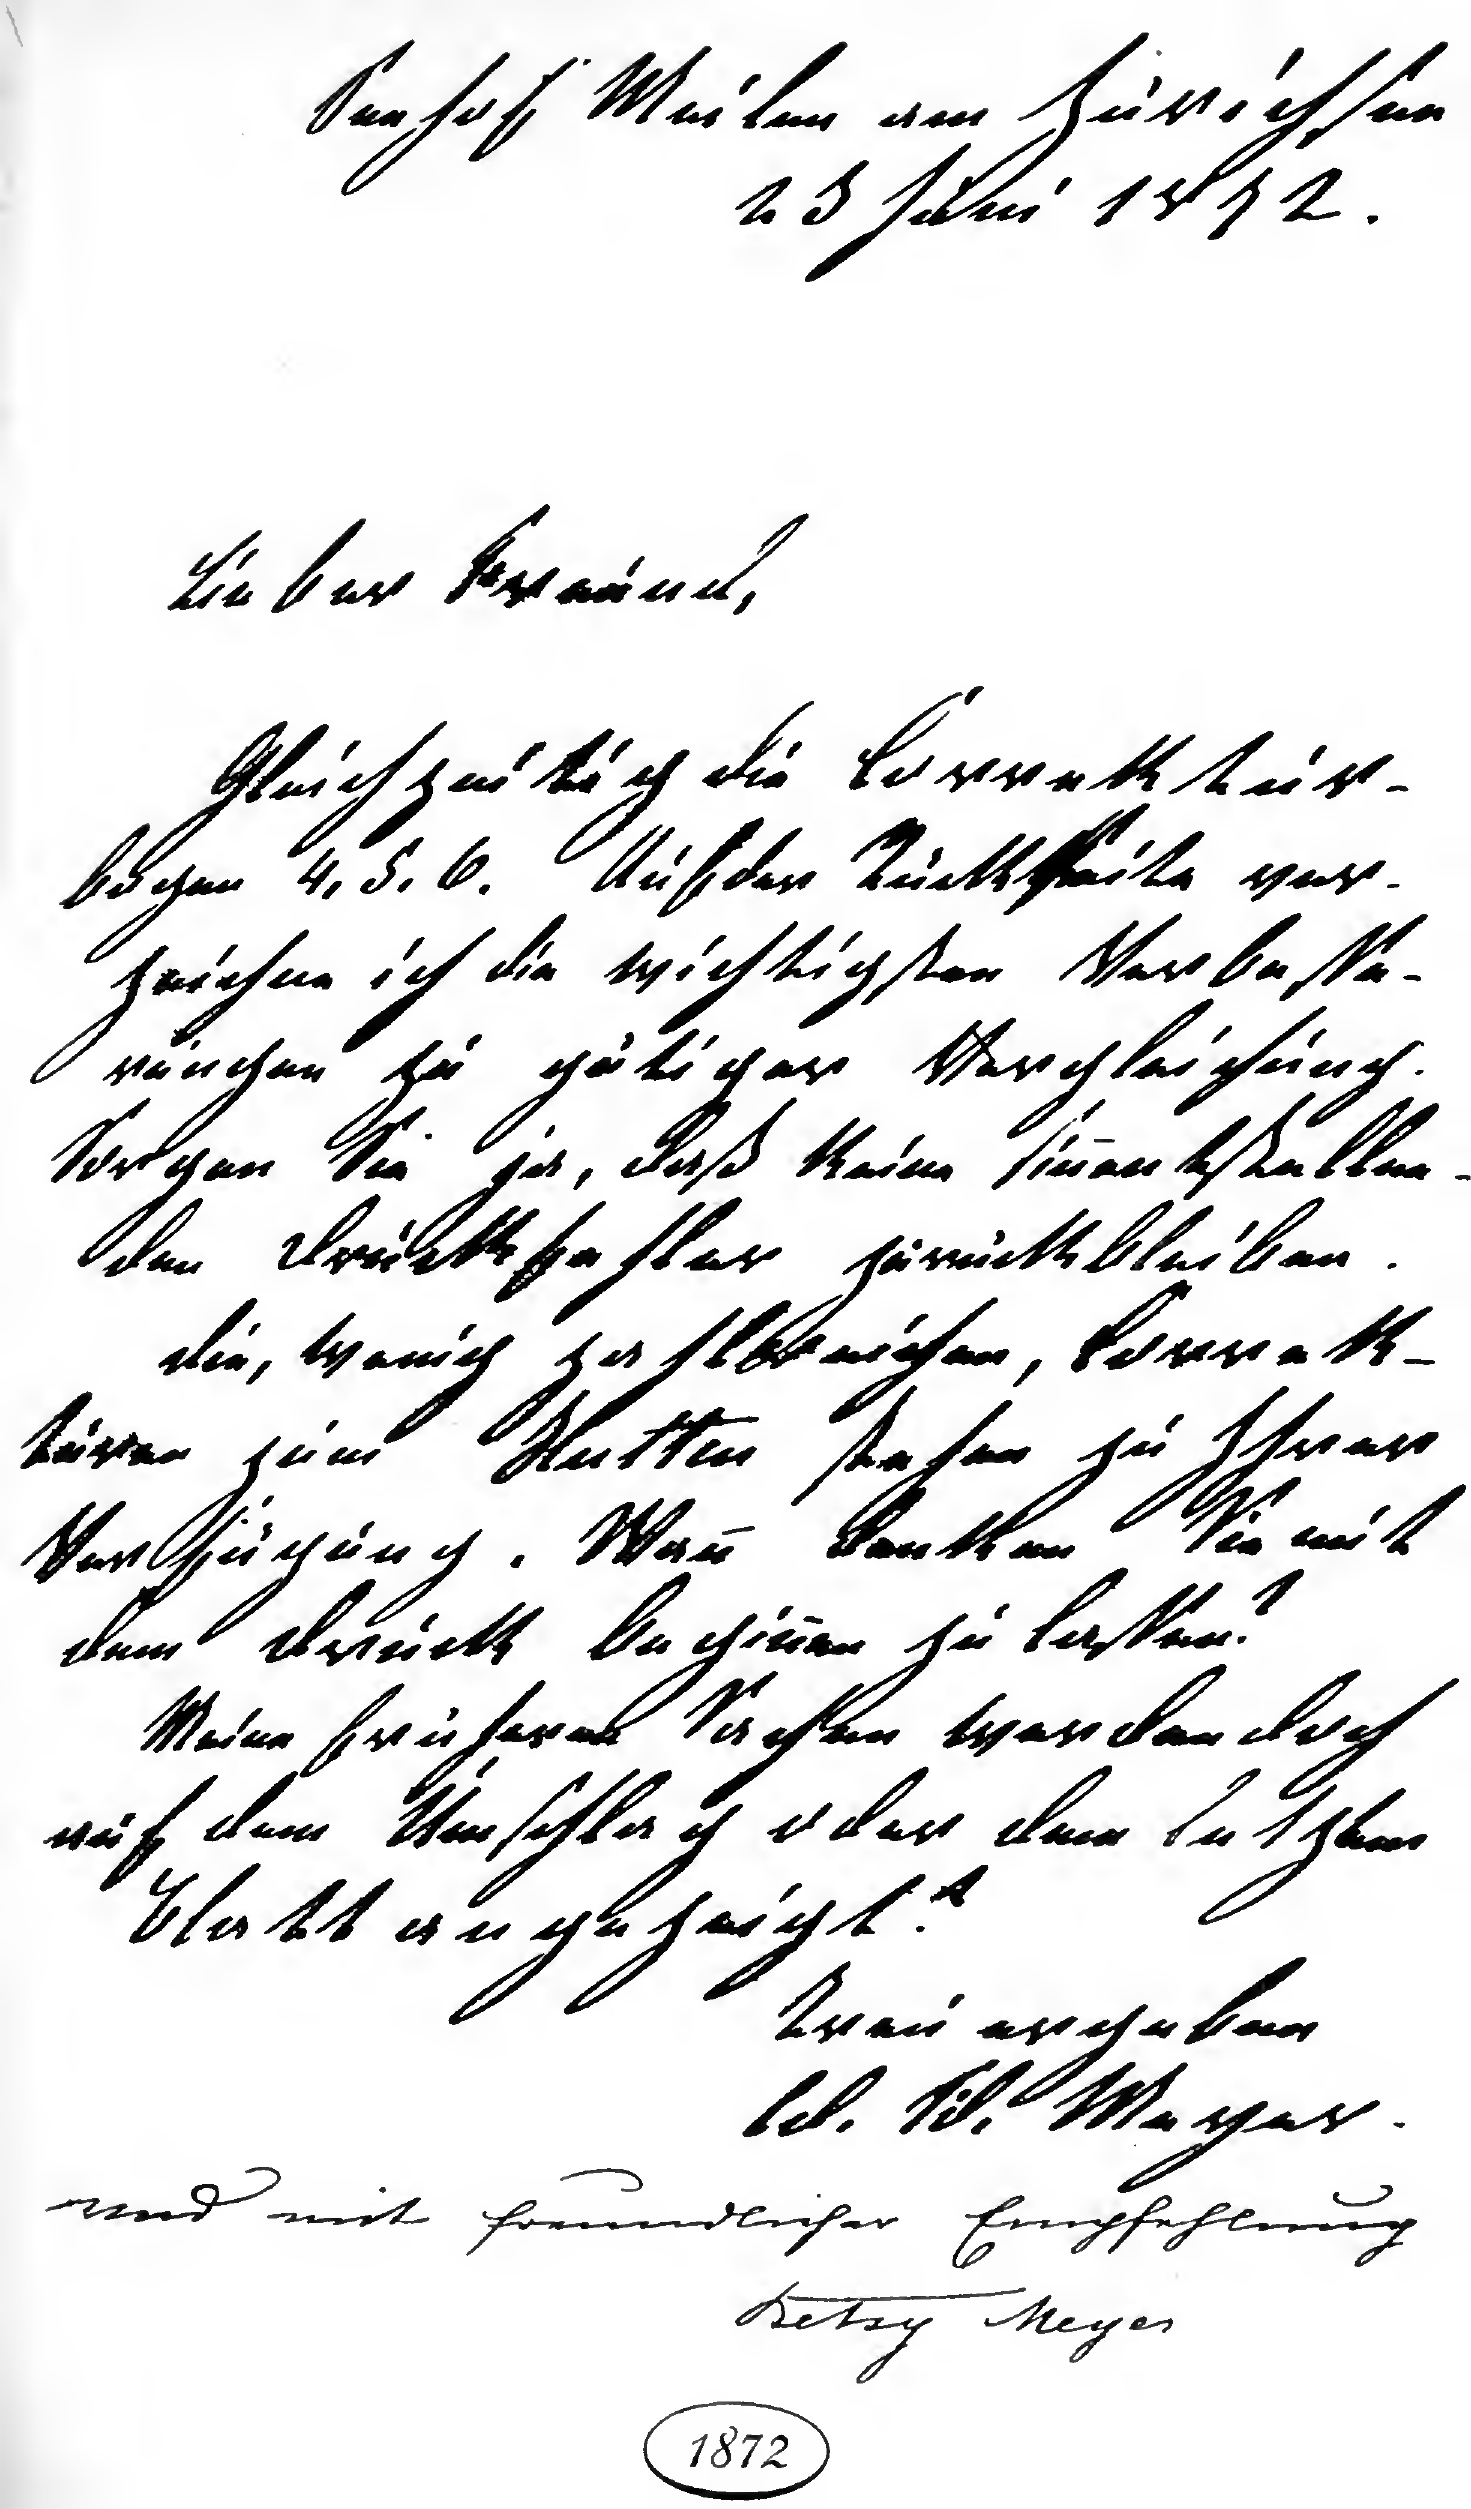 Seehof Meilen am Zürichsee
23 Juni 1872.
Lieber Freund,
Gleichzeitig die Correktur-
bogen 4. 5. 6. Auf der Rückseite ver-
zeichne ich die wichtigsten Verbesse-
rungen zu gütiger Vergleichung.
Sorgen Sie ja, daß keine sin̄entstellen-
den Druckfehler zurückbleiben.
Die, wenig zahlreichen, Correk-
turen zum Hutten stehen zu Ihrer
Verfügung. Wan̄ denken Sie mit
dem Druck begin̄en zu lassen?
Meine früheren Sachen werden doch
auf dem Umschlag oder dem letzten
Blatt angezeigt?
Treu ergeben
Cd. Fd. Meyer.
und mit freundlicher Empfehlung
Betsy Meyer
1872